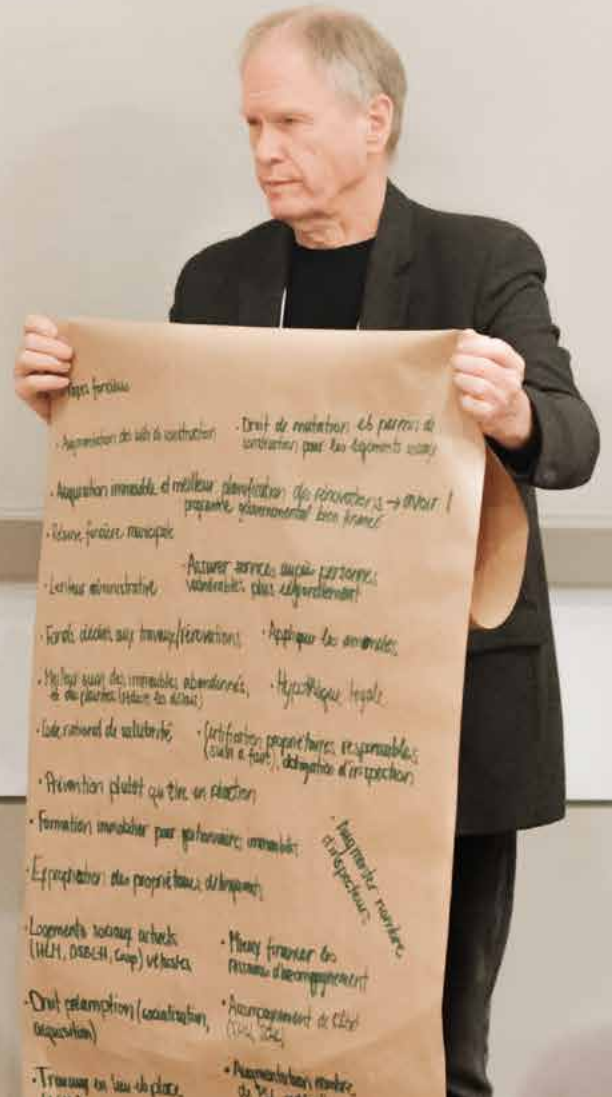 fonciers
· Augmentation des coûts de construction
· Droit de mutation et permis de
construction pour les logements sociaux
· Acquisition immeuble et meilleur planification des rénovations → avoir 1
programme gouvernemental bien financé
· Réserve foncière municipale
· Lenteur administrative
· Assurer services auprès personnes
vulnérables plus rapidement
· Fonds dédiés aux travaux/rénovations
· Appliquer les amendes
· Meilleur suivi des immeubles abandonnés,
et des plaintes (réduire les délais)
· Hypothèque légale
· Code national de salubrité
· Certification propriétaires responsables
délégation d'inspection
· Prévention plutôt qu'être en réaction
· Formation immobilier pour gestionnaires immeubles
· Augmenter nombre
d'inspecteurs
· Expropriation des propriétaires délinquants
· Logements sociaux actuels
(HLM, OSBL-H, Coop) vétustes
· Mieux financer les
ressources d'accompagnement
· Droit préemption (socialisation,
acquisition)
· Accompagnement de
· en lieu de place
· Augmentation nombre